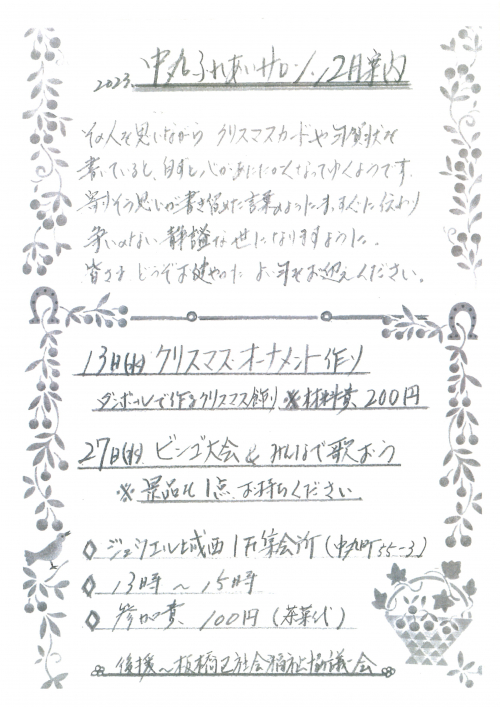 2023. 中丸ふれあいサロン 12月案内
その人を思いながら クリスマスカードや年賀状を
書いていると、自ずと心があたたかくなってゆくようです。
寄りそう思いが書き留めた言葉のように、まっすぐに伝わり
争いのない 静謐な世になりますように。
皆さま どうぞお健やかに よい年をお迎えください。
13日(水) クリスマス・オーナメント作り
ダンボールで作るクリスマス飾り ※材料費 200円
27日(水) ビンゴ大会 & みんなで歌おう
※ 景品を1点 お持ちください
◇ ジェシエール城西1F集会所 (中丸町35-3)
◇ 13時 〜 15時
◇ 参加費 100円 (茶菓代)
後援〜板橋区社会福祉協議会